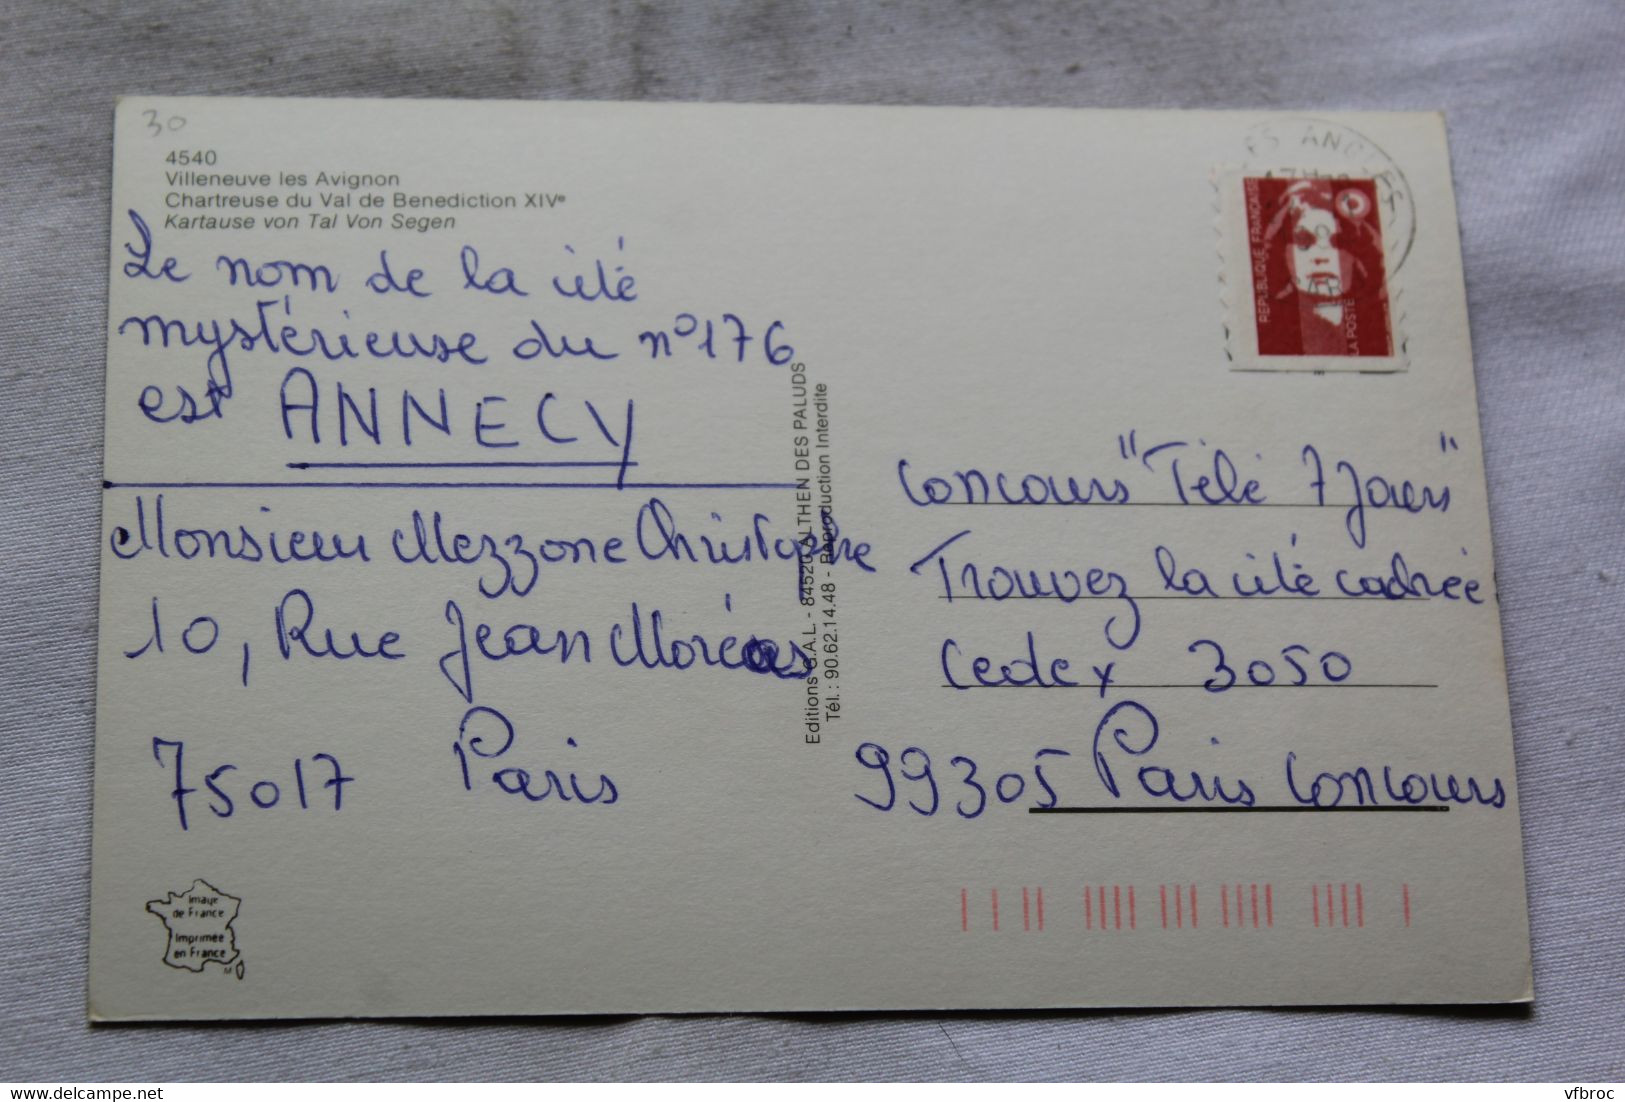 30
4540
Villeneuve les Avignon
Chartreuse du Val de Benediction XIVe
Kartause von Tal Von Segen
Le nom de la cité
mystérieuse du n° 176
est ANNECY
Monsieur Mezzone Christophe
10, Rue Jean Moréas
75017 Paris
Editions G.A.L. - 84520 ALTHEN DES PALUDS
Tél. : 90.62.14.48 - Reproduction Interdite
REPUBLIQUE FRANÇAISE
LA POSTE
Concours "Télé 7 Jours"
Trouvez la cité cadrée
Cedex 3050
99305 Paris Concours
Image
de France
Imprimée
en France
delcampe.net
vfbroc